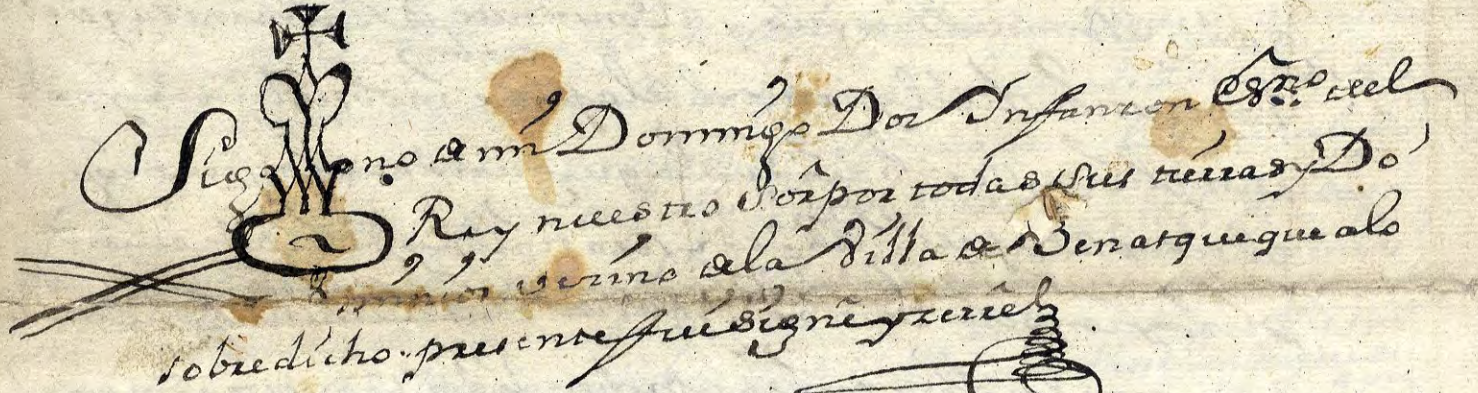 Sig no de mi Domingo Dor Infanzon Essno. del
Rey nuestro Sor. por todas sus tierras y Do
minios vecino de la Villa de Benasque que a lo
sobredicho presente fui signé y cerré